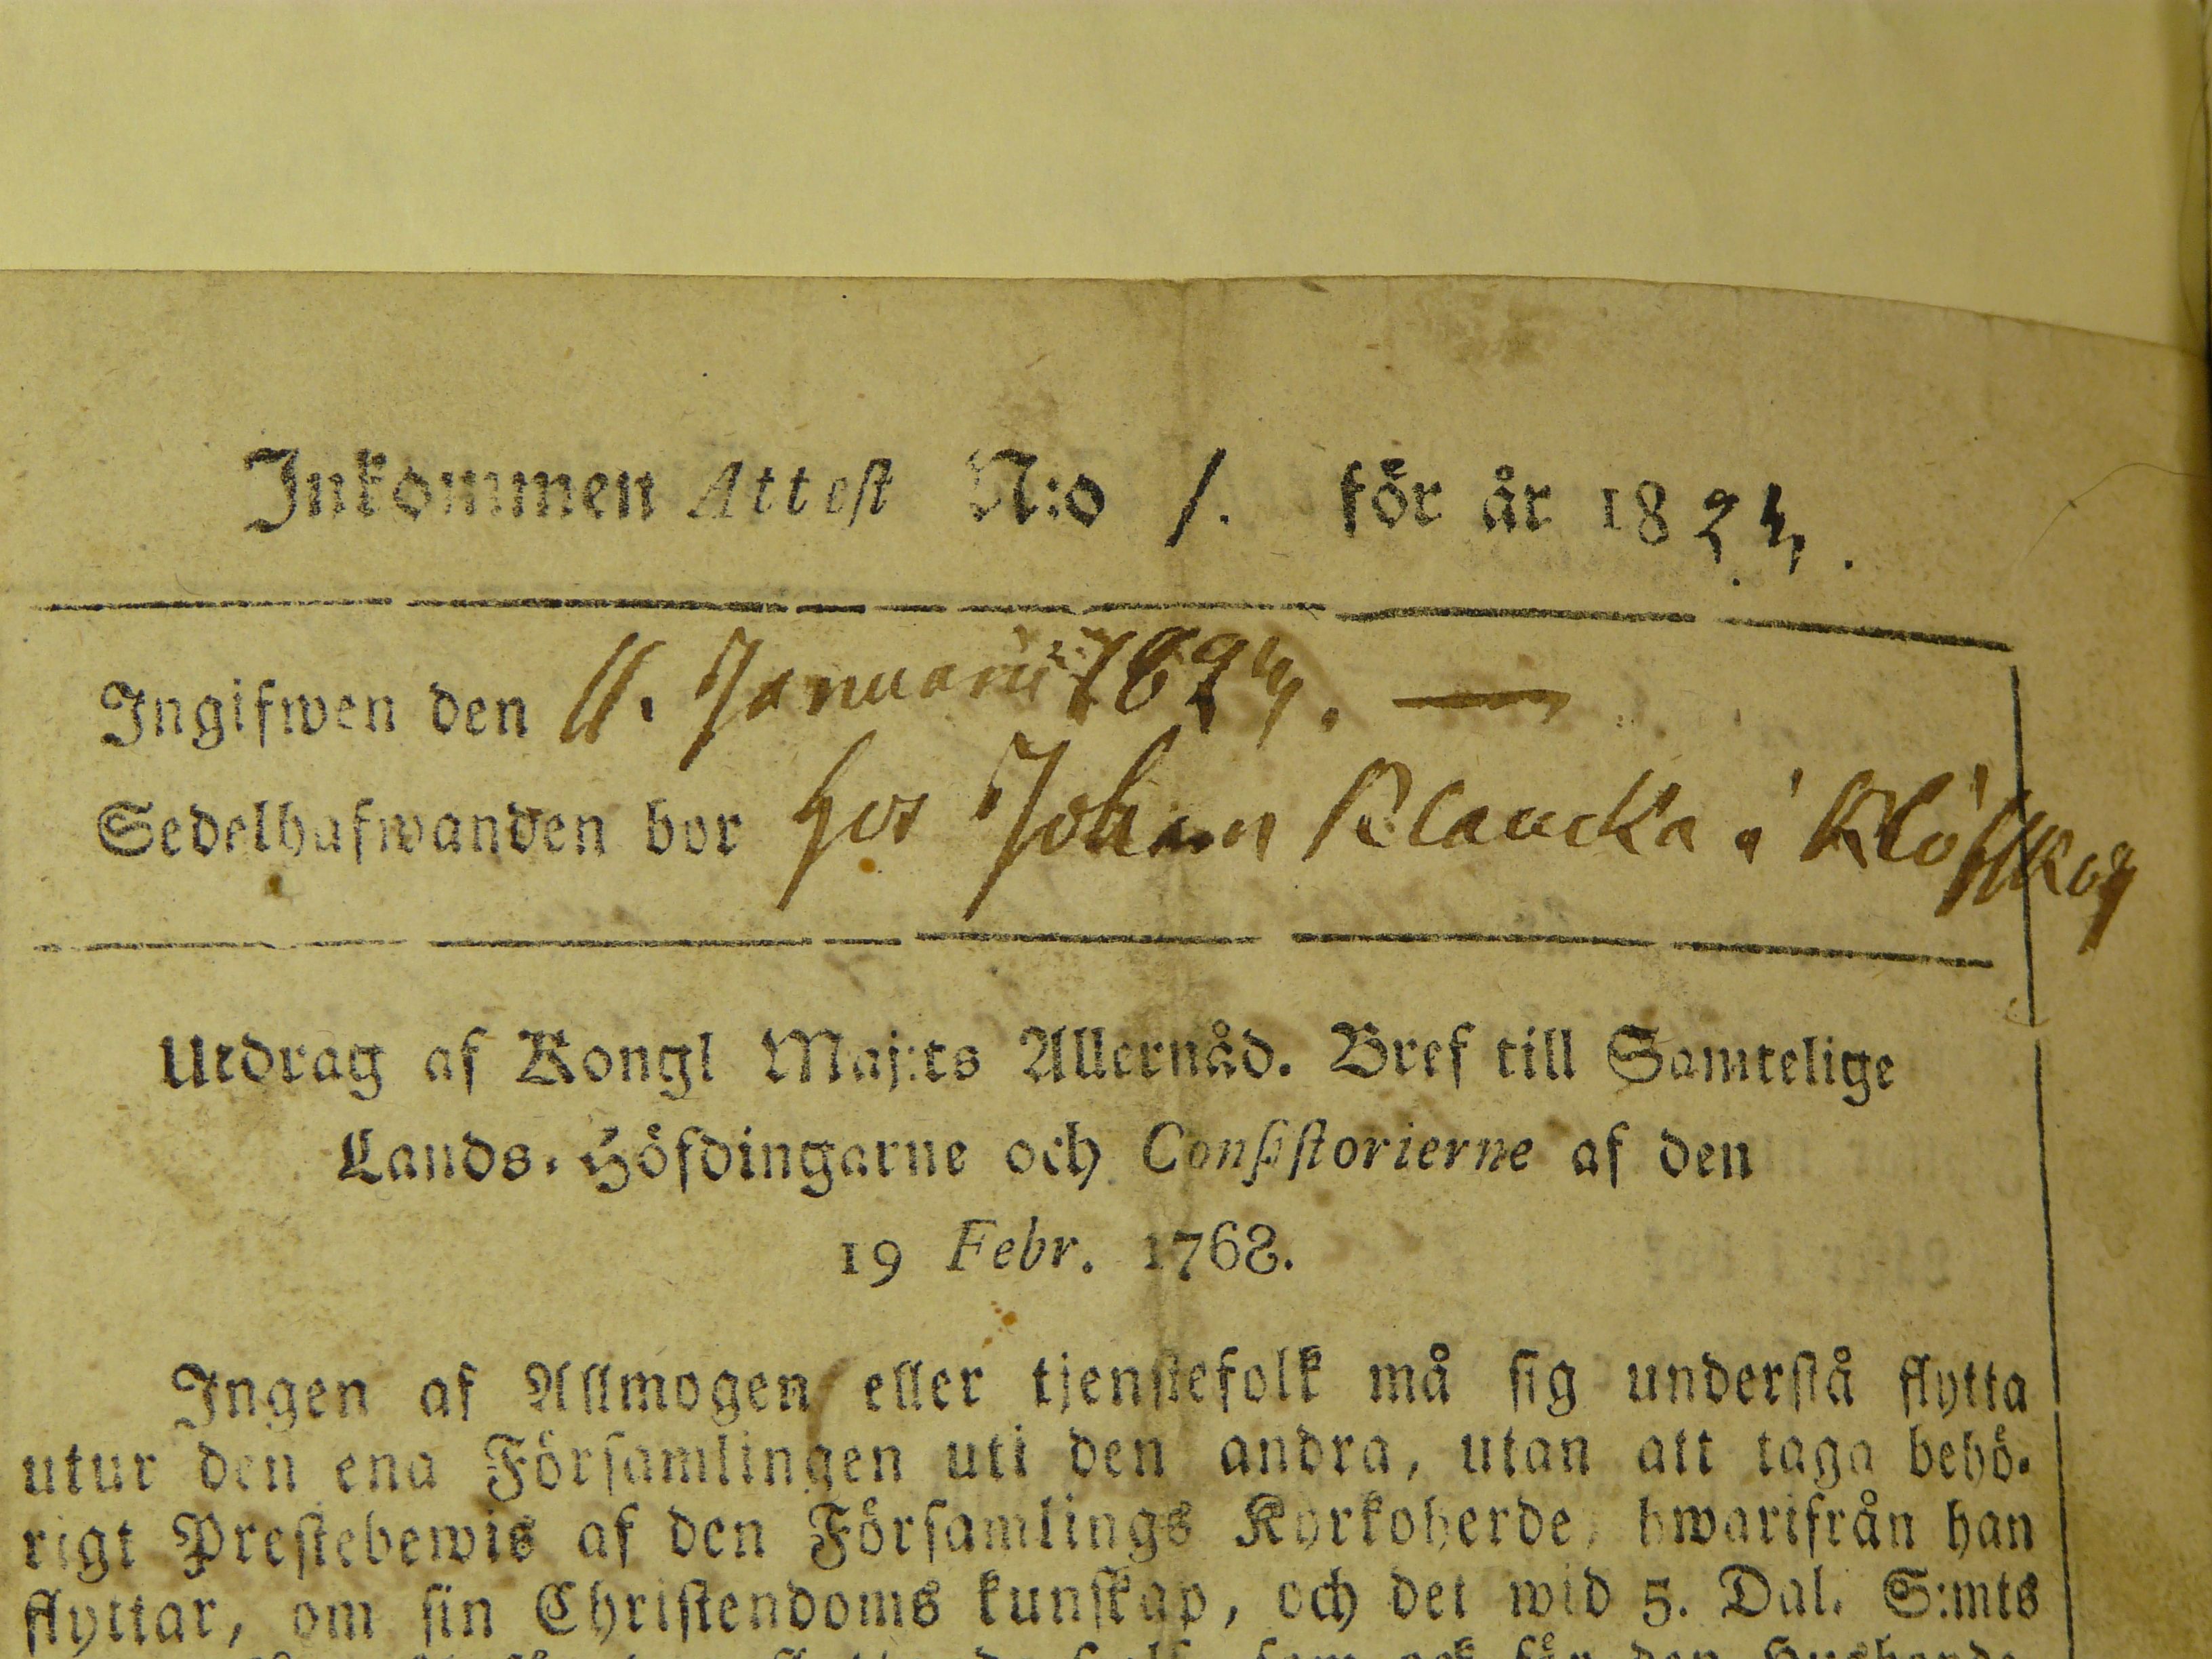 Inkommen Attest N:o 1. för år 1824.
Ingifwen den 11. Januarii 1824. —
Sedelhafwanden bor hos Johan Klaucka i Klåfskog
Utdrag af Kongl Maj:ts Allernåd. Bref till Samtelige
Lands-Höfdingarne och Consistorierne af den
19 Febr. 1768.
Ingen af Allmogen eller tjenstefolk må sig understå flytta
utur den ena Församlingen uti den andra, utan att taga behö-
rigt Prestebewis af den Församlings Kyrkoherde, hwarifrån han
flyttar, om sin Christendoms kunskap, och det wid 5. Dal. S:mts